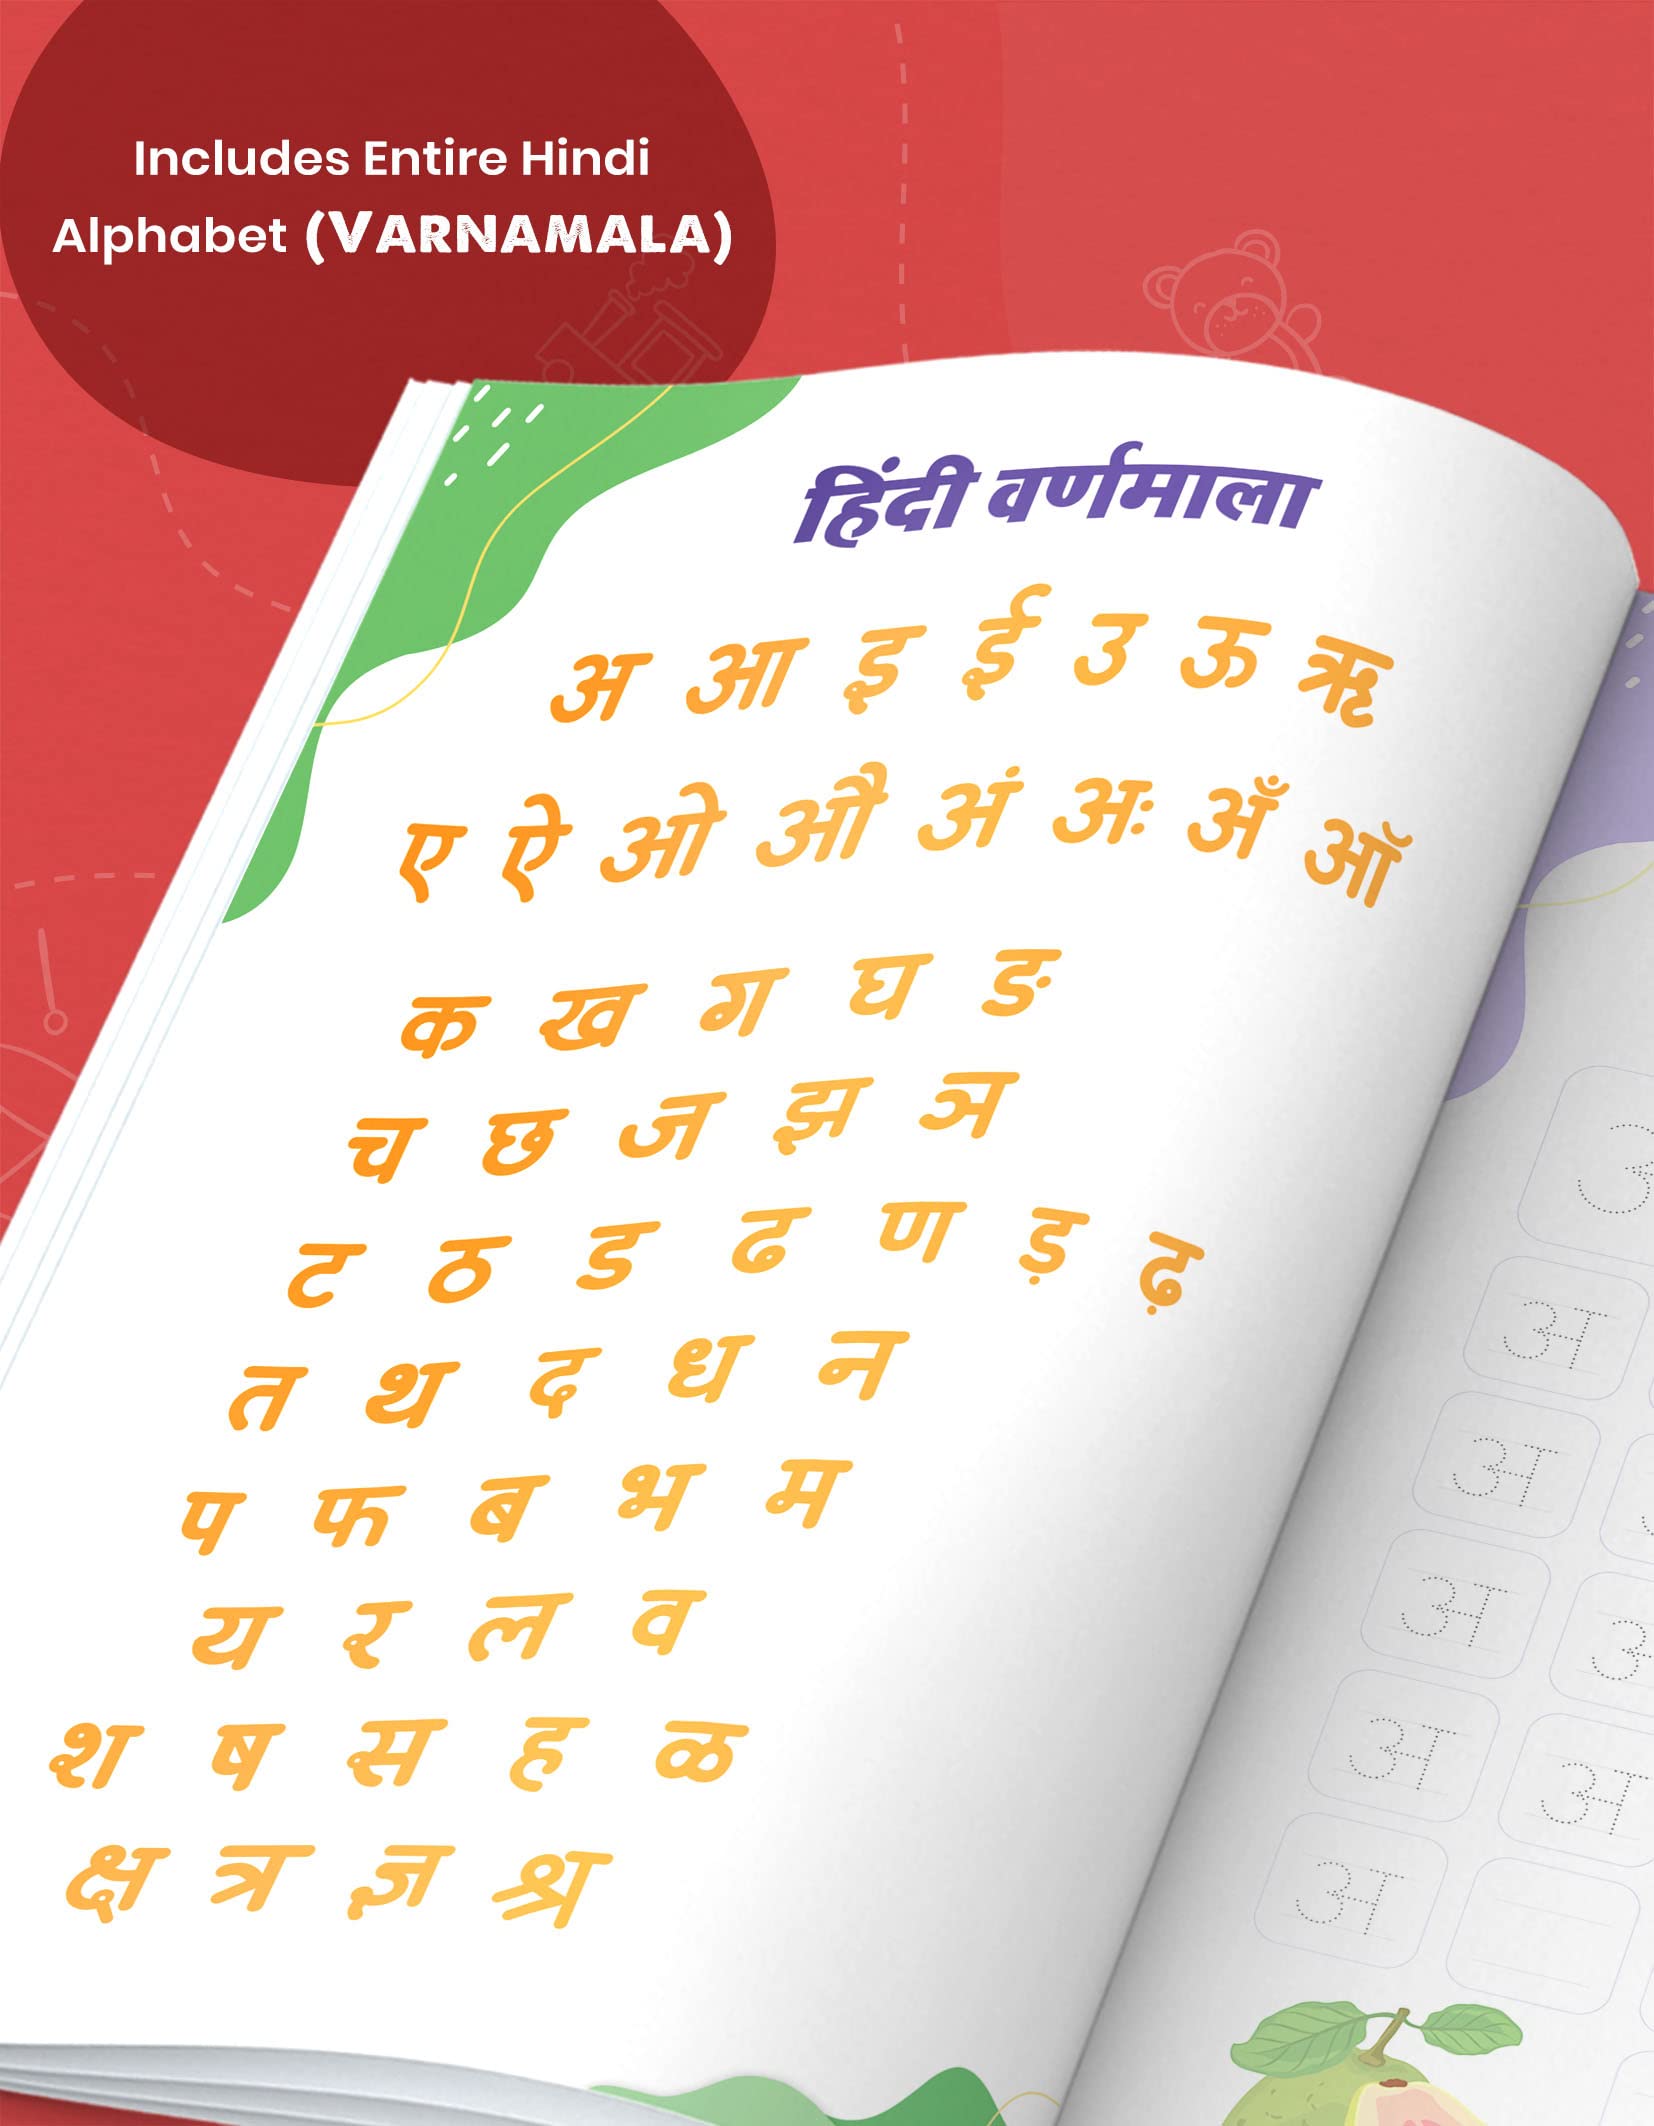 Includes Entire Hindi
Alphabet (VARNAMALA)
हिंदी वर्णमाला
अ आ इ ई उ ऊ ऋ
ए ऐ ओ औ अं अः अँ ऑ
क ख ग घ ङ
च छ ज झ ञ
ट ठ ड ढ ण ड़ ढ़
त थ द ध न
प फ ब भ म
य र ल व
श ष स ह ळ
क्ष त्र ज्ञ श्र
अ
अ
अ
अ अ
अ